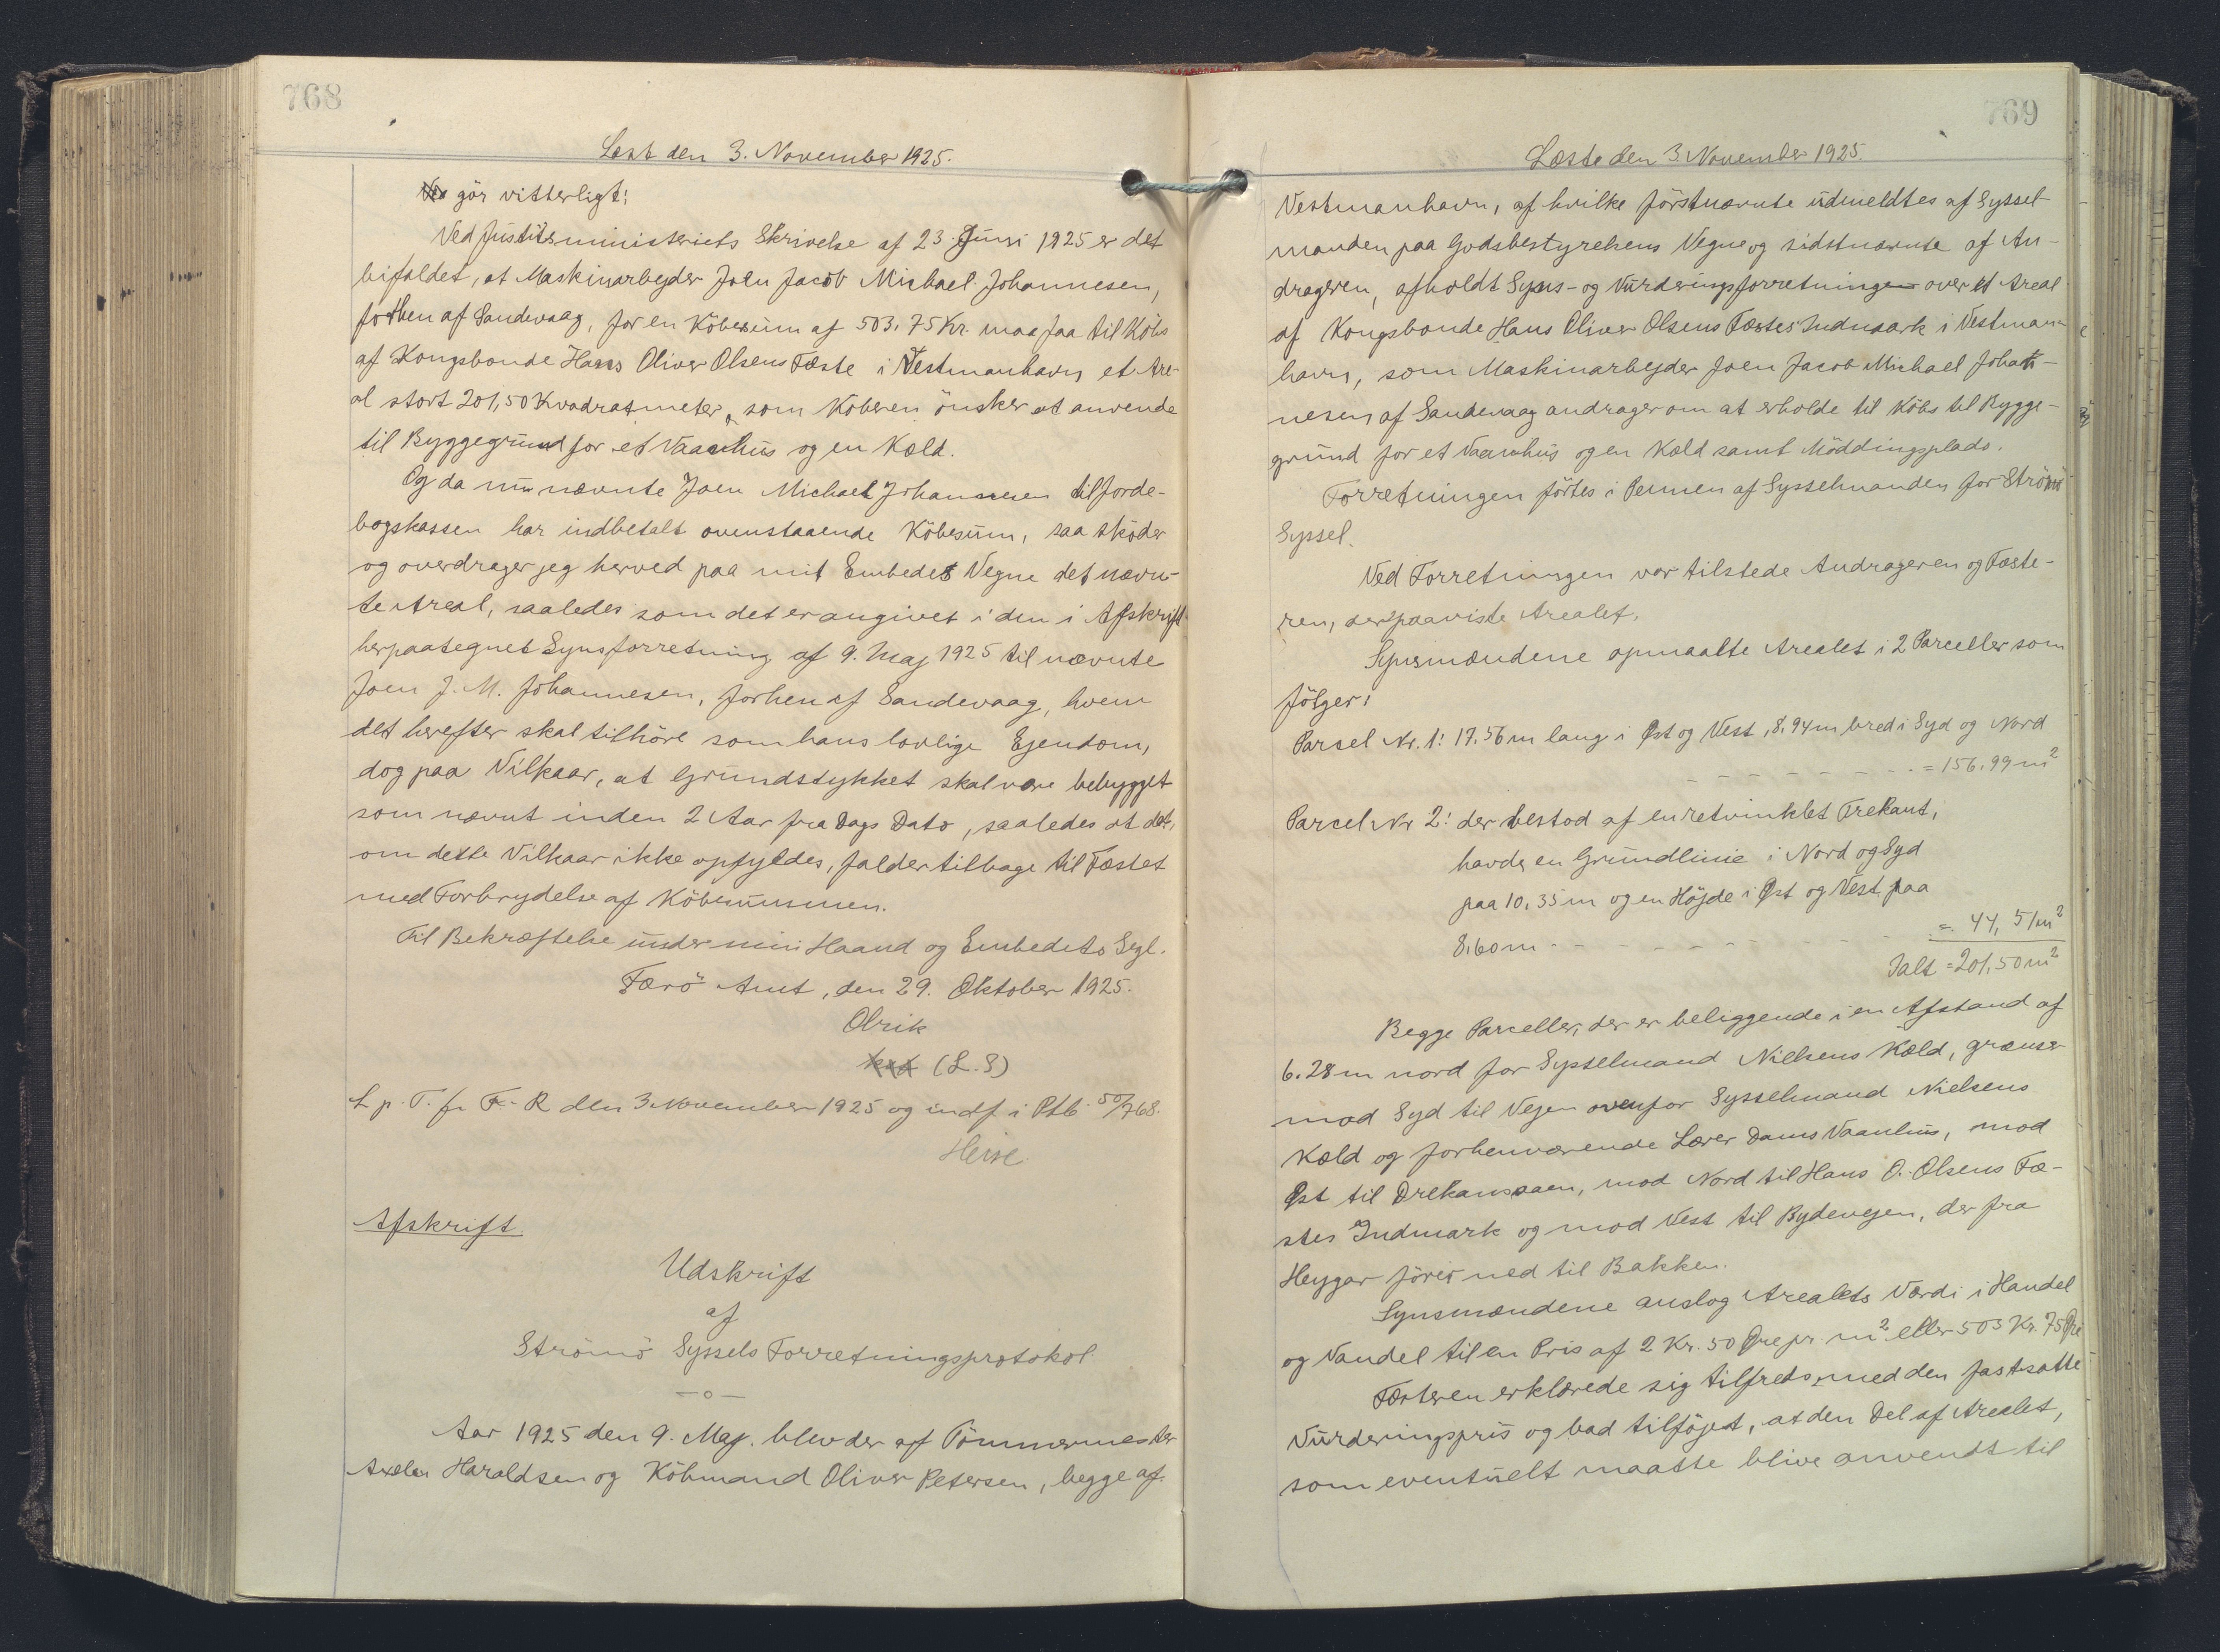 768
Læst den 3. November 1925.
gör vitterligt:
Ved Justitsministeriets Skrivelse af 23. Juni 1925 er det
bifaldet, at Maskinarbejder Joen Jacob Michael Johannesen,
forhen af Sandevaag, for en Köbesum af 503,75 Kr. maa faa til Köbs
af Kongsbonde Hans Oliver Olsens Fæste i Vestmanhavn et Are-
al stort 201,50 Kvadratmeter, som Köberen önsker at anvende
til Byggegrund for et Vaanhus og en Kæld.
Og da nu nævnte Joen Michael Johannesen til Jorde-
bogskassen har indbetalt ovenstaaende Köbesum, saa sköder
og overdrager jeg herved paa mit Embedes Vegne det nævn-
te Areal, saaledes som det er angivet i den i Afskrift
herpaategnet Synsforretning af 9. Maj 1925 til nævnte
Joen J. M. Johannesen, forhen af Sandevaag, hvem
det herefter skal tilhöre som hans lovlige Ejendom,
dog paa Vilkaar, at Grundstykket skal være bebygget
som nævnt inden 2 Aar fra Dags Dato, saaledes at det,
om dette Vilkaar ikke opfyldes, falder tilbage til Fæstet
med Forbrydelse af Köbesummen.
Til Bekræftelse under min Haand og Embedets Segl.
Færö Amt, den 29. Oktober 1925.
Olrik
(L.S)
L p. T. f. F. R den 3 November 1925 og indf. i Ptb. 50/768.
Heise
Afskrift
Udskrift
af
Strömö Syssels Forretningsprotokol.
—o—
Aar 1925 den 9. Maj. blev der af Tömmermester
Haraldsen og Köbmand Oliver Petersen, begge af
769
Læste den 3. November 1925.
Vestmanhavn, af hvilke förstnævnte udmeldtes af Syssel-
manden paa Godsbestyrelsens Vegne og sidstnævnte af An-
drageren, afholdt Syns- og Vurderingsforretning over et Areal
af Kongsbonde Hans Oliver Olsens Fæstes Indmark i Vestman-
havn, som Maskinarbejder Joen Jacob Michael Johan-
nesen af Sandevaag andrager om at erholde til Köbs til Bygge-
grund for et Vaanhus og en Kæld samt Möddingsplads.
Forretningen förtes i Pennen af Sysselmanden for Strömö
Syssel.
Ved Forretningen var tilstede Andrageren og Fæste-
ren, der paaviste Arealet.
Synsmændene opmaalte Arealet i 2 Parceller som
fölger:
Parsel Nr. 1: 17.56 m lang i Øst og Vest, 8,94 m bred i Syd og Nord
- - - - - - - - = 156.99 m²
Parcel Nr 2: der bestod af en retvinklet Trekant,
havde en Grundlinie i Nord og Syd
paa 10,35 m og en Höjde i Øst og Vest paa
8,60 m - - - - - - - - - = 44,51 m²
Ialt = 201,50 m²
Begge Parceller, der er beliggende i en Afstand af
6.28 m nord for Sysselmand Nielsens Kæld, grænser
mod Syd til Vejen ovenfor Sysselmand Nielsens
Kæld og forhenværende Lærer Dams Vaanhus, mod
Øst til Drekansaaen, mod Nord til Hans O. Olsens Fæ-
stes Indmark og mod Vest til Bydevejen, der fra
Heygar föres ned til Bakken.
Synsmændene anslog Arealets Værdi i Handel
og Vandel til en Pris af 2 Kr. 50 Øre pr. m² eller 503 Kr. 75 Øre
Fæsteren erklærede sig tilfreds med den fastsatte
Vurderingspris og bad tilföjet, at den Del af Arealet,
som eventuelt maatte blive anvendt til